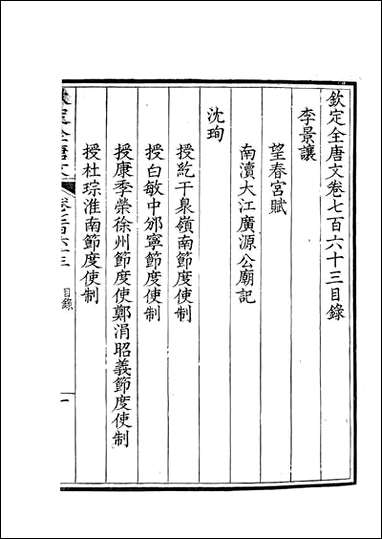 欽定全唐文卷七百六十三目錄
李景讓
望春宮賦
南瀆大江廣源公廟記
沈珣
授紇干臮嶺南節度使制
授白敏中邠寧節度使制
授康季榮徐州節度使鄭涓昭義節度使制
授杜琮淮南節度使制
欽定全唐文
卷七百六十三
目錄
一